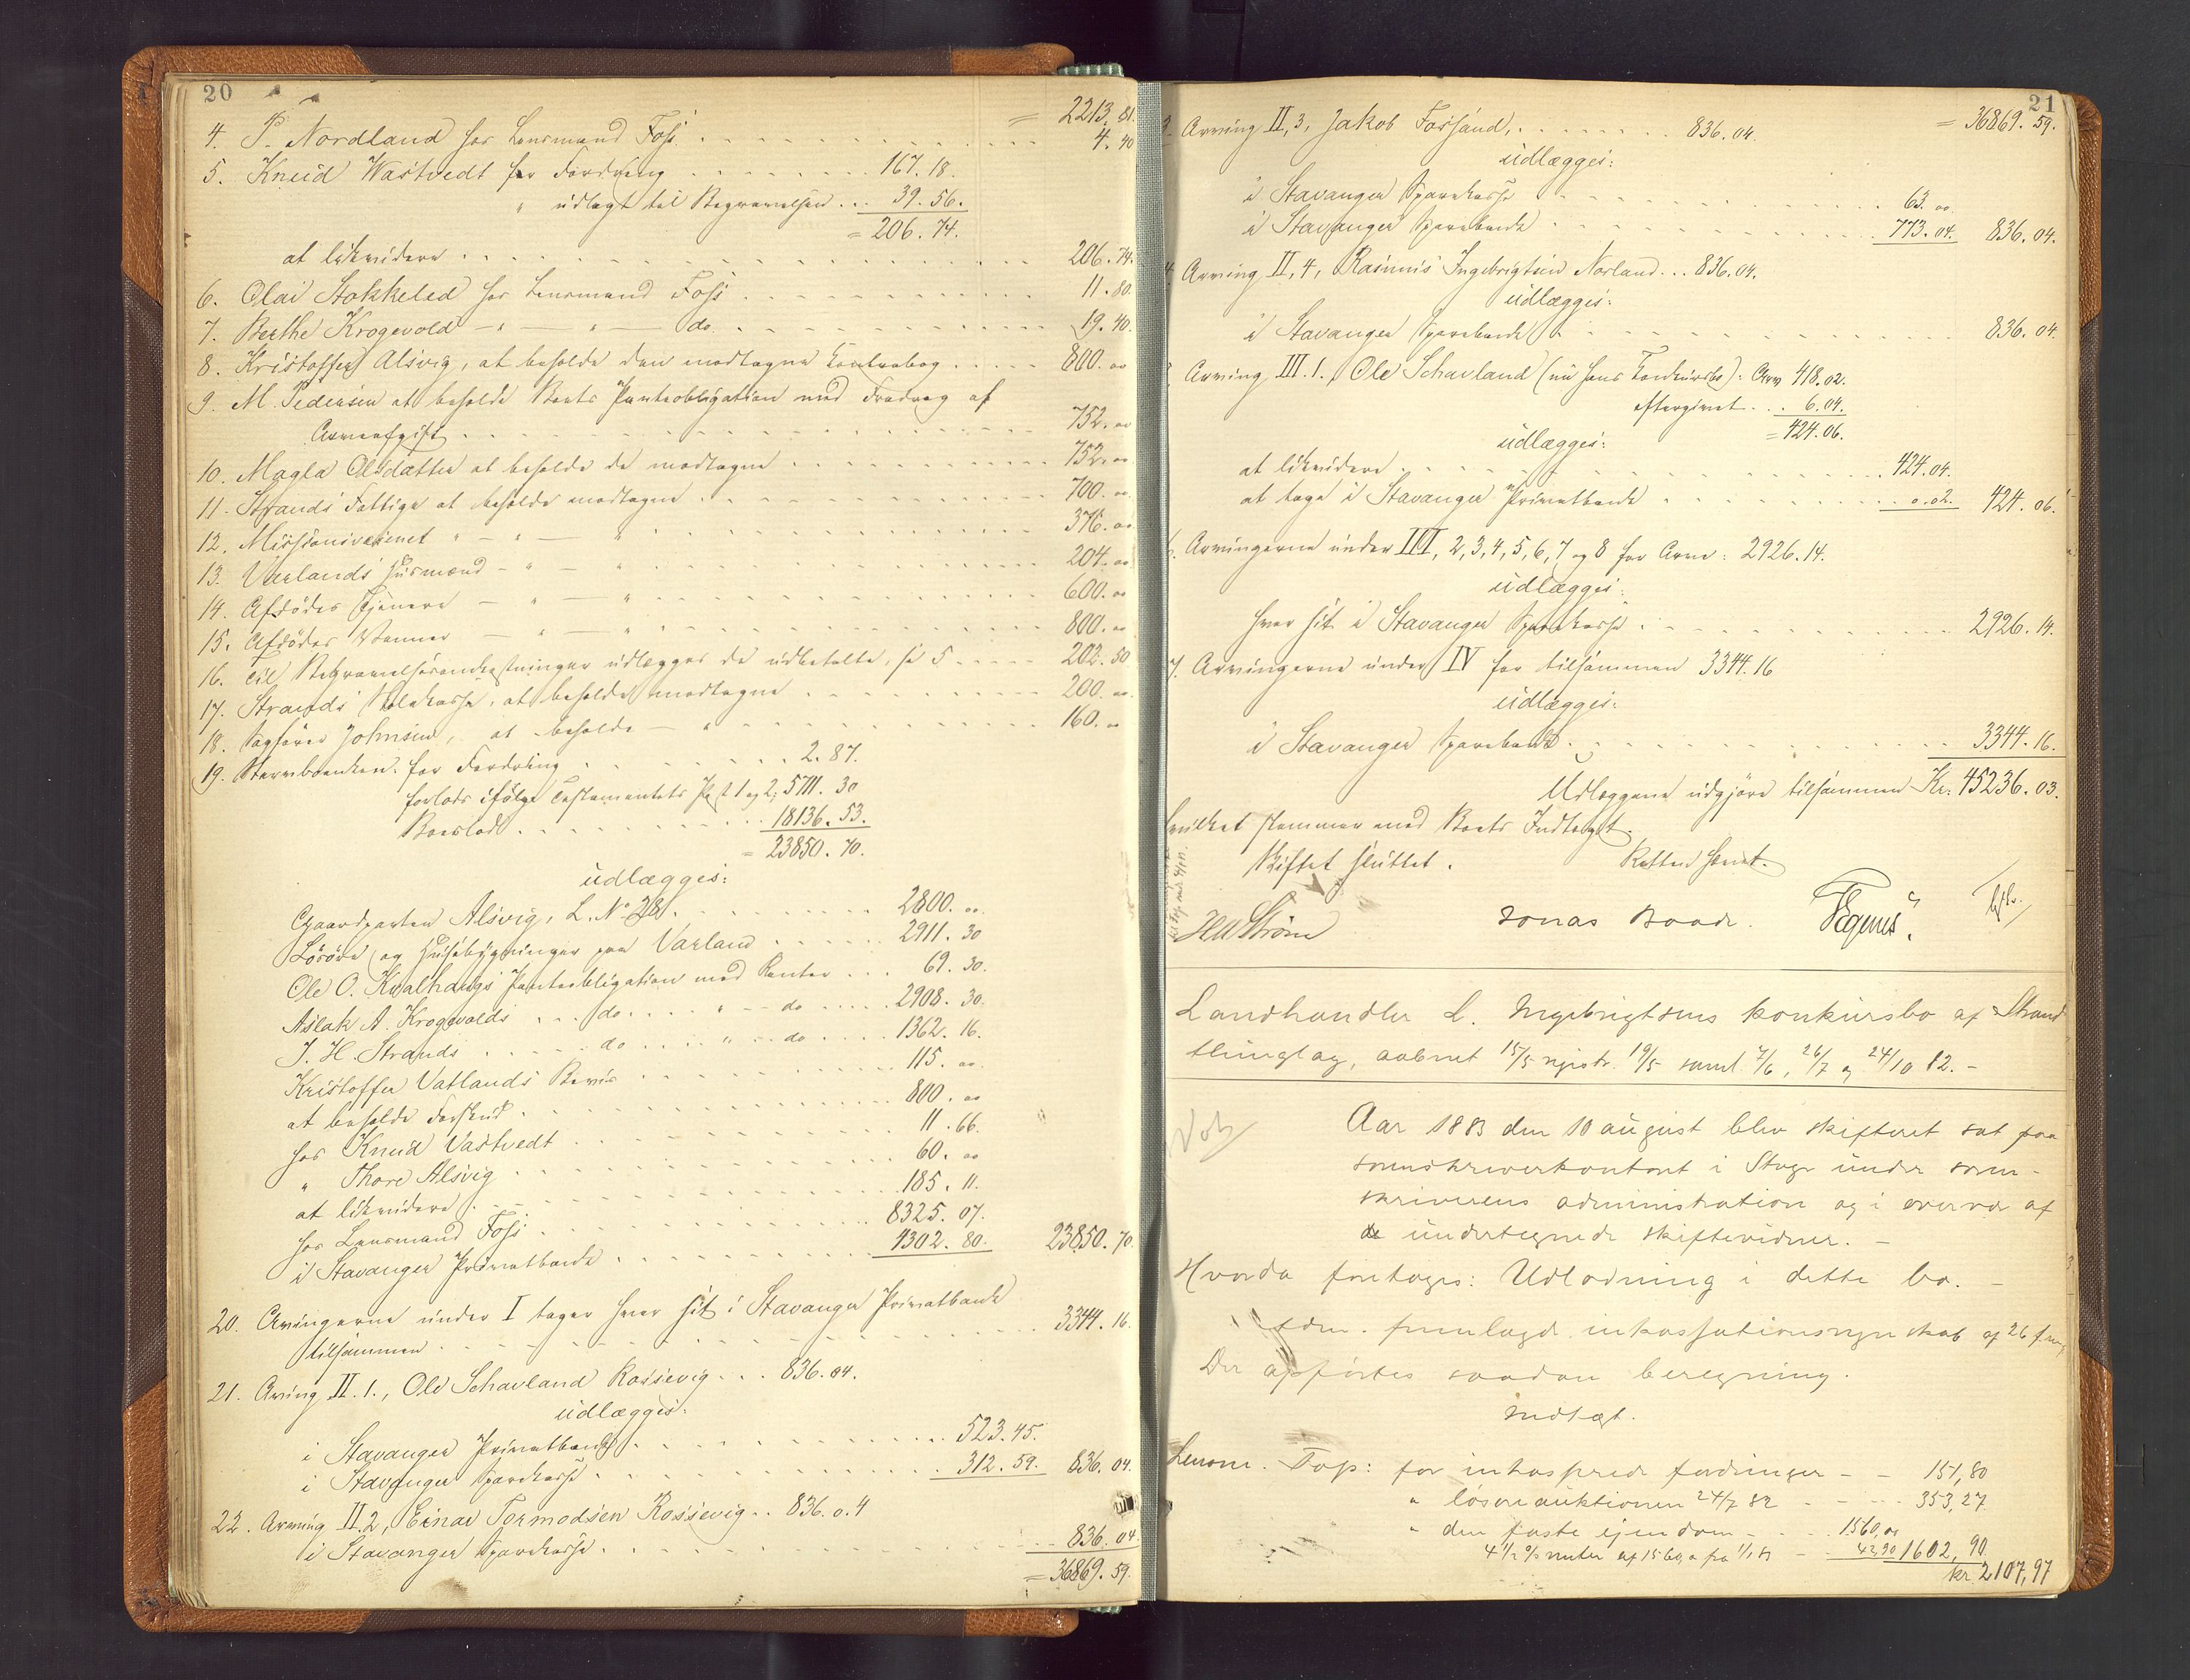 20
= 2213. 81.
4. P. Nordland hos Lensmand Foss . . . 4. 40
5. Knud Wastvedt for Fordring . . . 167. 18.
" udlagt til Begravelsen . . . 39. 56.
= 206. 74.
at likvidere . . . 206. 74.
6. Olai Stokkeled hos Lensmand Foss . . . 11. 80.
7. Berthe Krogevold — " — " — do. . . . 19. 40.
8. Kristoffer Alsvig, at beholde den modtagne Contrabog . . . 800. 00
9. M. Pedersen at beholde Boets Panteobligation med Fradrag af
Arveafgift . . . 752. 00
10. Magla Olsdatter at beholde de modtagne . . . 752. 00
11. Strands Fattige at beholde modtagne . . . 700. 00
12. Missionsvæsenet " — " — " . . . 376. 00
13. Varlands Husmænd — " — " . . . 204. 00
14. Afdødes Tjenere — " — " . . . 600. 00
15. Afdødes Venner — " — " . . . 800. 00
16. Til Begravelsesomkostninger udlægges de udbetalte, se 5 . . . 202. 50
17. Strands Skolekasse, at beholde modtagne . . . 200. 00
18. Sagfører Johnsen, at beholde — " . . . 160. 00
19. Stervboenken: for Fordring . . . 2. 87.
forlods ifølge Testamentets Post 1 og 2; 5711. 30
Boeslod . . . 18136. 53.
= 23850. 70.
udlægges:
Gaardparten Alsvig, L. No 28 . . . 2800. 00
Løsøre og Husebygninger paa Varland . . . 2911. 30
Ole O. Kvalhaugs Panteobligation med Renter . . . 69. 30.
Aslak A. Krogevolds . . . do . . . " — do . . . 2908. 30.
J. H. Strands . . . do . . . " . . do . . . 1362. 16.
Kristoffer Vatlands Bevis . . . 115. 00
at beholde Forskud . . . 800. 00
hos Knud Vastvedt . . . 11. 66.
" Thore Alsvig . . . 60. 00
at likvidere . . . 185. 11.
hos Lensmand Foss . . . 8325. 07.
i Stavanger Privatbank . . . 4302. 80. 23850. 70.
20. Arvingerne under I tager hver sit i Stavanger Privatbank
tilsammen . . . 3344. 16.
21. Arving II. 1., Ole Schavland Rossevig . . . 836. 04.
udlægges:
i Stavanger Privatbank . . . 523. 45.
i Stavanger Sparekasse . . . 312. 59. 836. 04.
22. Arving II. 2, Einar Tormodsen Rossevig . . 836. 0.4
i Stavanger Sparekasse . . . 836. 04.
= 36869. 59.
21
= 36869. 59.
Arving II, 3, Jakob Fossand, . . . 836. 04.
udlægges:
i Stavanger Sparekasse . . . 63. 00
i Stavanger Sparebank . . . 773. 04. 836. 04.
Arving II, 4, Rasmus Ingebrigtsen Norland . . . 836. 04.
udlægges:
i Stavanger Sparebank . . . 836. 04.
Arving III. 1., Ole Schavland (nu hans Konkursbo): Arv 418. 02.
eftergivet . . . 6. 04.
= 424. 06.
udlægges:
at likvidere . . . 424. 04.
at tage i Stavanger Privatbank . . . 0. 02. 424. 06.
Arvingerne under III, 2, 3, 4, 5, 6, 7 og 8 for Arv: 2926. 14.
udlægges:
hver sit i Stavanger Sparekasse . . . 2926. 14.
7. Arvingerne under IV for tilsammen 3344. 16
udlægges:
i Stavanger Sparebank . . . 3344. 16.
Udlæggene udgjøre tilsammen Kr. 45236. 03.
hvilket stemmer med Boets Indtægt.
Skiftet sluttet. Retten hævet.
Strøm Jonas Boade. Tegnes.
Landhandler L. Ingebrigtsens konkursbo af Strand
thinglag, aabnet 15/5 registr. 19/5 saml. 7/6, 26/7 og 24/10 82. –
Aar 1883 den 10 august blev skifteret sat paa
sorenskriverkontoret i Stvgr under soren-
skriverens administration og i overvær af
de undertegnede skiftevidner. –
Hvorda foretoges: Udlodning i dette bo. –
Adm. fremlagde inkassationsregnskab af 26 f. m.
Der opførtes saadan beregning.
Indtægt.
Lensm. Foss: for inkasserede fordringer – – 151,80
" løsøreauktionen 24/7 82 – – – 353,27
" den faste eiendom – . . 1560,00
4 1/2 % renter af 1560,0 fra 1/1 83 – . . 42,90 1602,90
kr. 2107,97